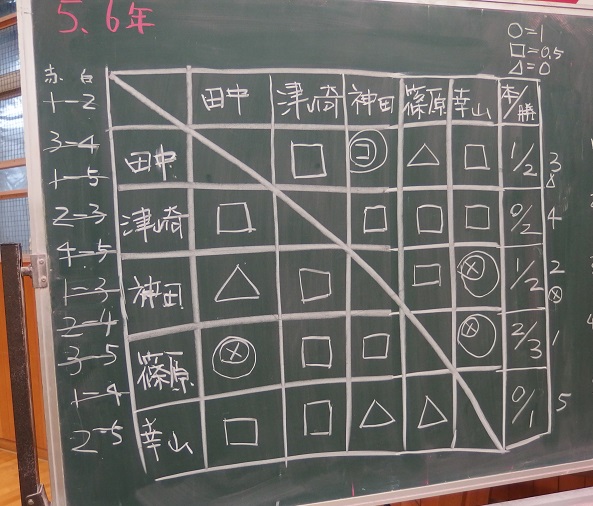 5、6年
○=1
□=0.5
△=0
赤 白
1-2
3-4
1-5
2-3
4-5
1-3
2-4
3-5
1-4
2-5
田中 津崎 神田 篠原 幸山 本/勝
田中 □ コ △ □ 1/2 3 △
津崎 □ □ □ □ 0/2 4
神田 △ □ □ メ 1/2 2 メ
篠原 メ □ □ メ 2/3 1
幸山 □ □ △ △ 0/1 5